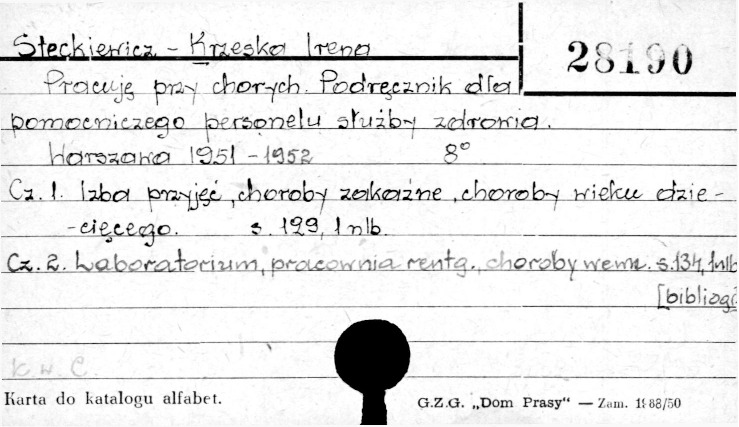 Steckiewicz - Krzeska Irena
28190
Pracuję przy chorych. Podręcznik dla
pomocniczego personelu służby zdrowia.
Warszawa 1951 - 1952 8°
Cz. 1. Izba przyjęć, choroby zakaźne, choroby wieku dzie-
-cięcego. s. 129, 1 nlb.
Cz. 2. Laboratorium, pracownia rentg., choroby wewn. s. 134, 1 nlb
[bibliogr
K w C.
Karta do katalogu alfabet.
G.Z.G. „Dom Prasy" — Zam. 1988/50